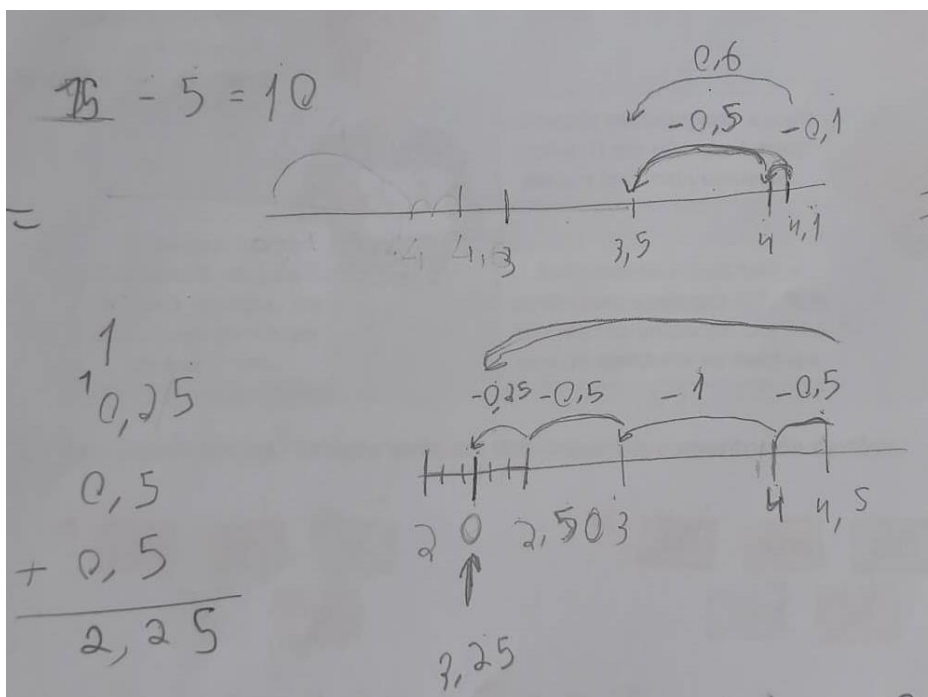 15 - 5 = 10
0,6
-0,5 -0,1
=
3 3,5 4 4,1
1
1
0,25
0,5
+ 0,5
2,25
-0,25 -0,5 -1 -0,5
2 0 2,50 3 4 4,5
3,25